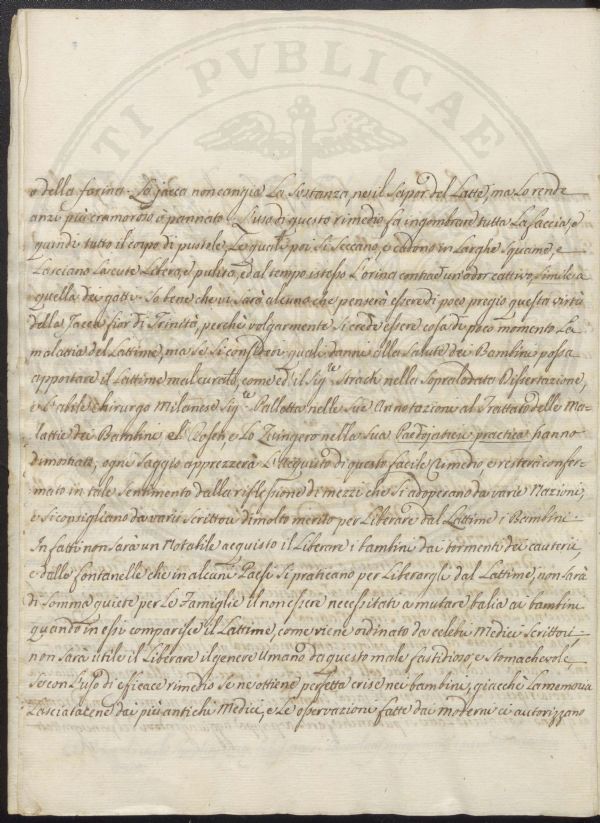 TI PVBLICAE
o della farina. La jacea non cangia la sostanza, ne il sapor del Latte, ma lo rende
anzi più cramoroso o pannato. L'uso di questo rimedio fa ingombrare tutta la faccia, e
quindi tutto il corpo di pustole, le quali poi si seccano, e cadono in larghe squame, e
lasciano la cute libera, e pulita, ed al tempo istesso l'orina contrae un odor cattivo, simile a
quella dei gatti. So bene che vi sarà alcuno che penserà essere di poco pregio questa virtù
della Jacea fior di Trinità, perchè volgarmente si crede essere cosa di poco momento la
malattia del Lattime, ma se si consideri quale danno alla salute dei Bambini possa
apportare il Lattime mal curato, come ed il Sig.re Strach nella sopralodata Dissertazione,
e l'abile chirurgo Milanese Sig.re Palletta nelle sue Annotazioni al Trattato delle Ma-
lattie dei Bambini el Rosen, e lo Zvingero nella sua Paedojatreja practica hanno
dimostrato, ogni saggio apprezzerà l'acquisto di questo facile rimedio e resterà confer-
mato in tale sentimento dalla riflessione di mezzi che si adoperano da varie Nazioni,
e si consigliano da varii scrittori di molto merito per liberare dal Lattime i Bambini.
In fatti non sarà un notabile acquisto il liberare i bambini dai tormenti dei cauterii,
e dalle fontanelle che in alcuni Paesi si praticano per liberargli dal Lattime, non sarà
di somma quiete per le Famiglie il non essere necessitati a mutare balia ai bambini
quando in essi comparisce il Lattime, come viene ordinato da celebri Medici scrittori,
non sarà utile il liberare il genere umano da questo male fastidioso, e stomachevole,
se con l'uso di efficace rimedio se ne ottiene perfetta crise nei bambini, giacchè la memoria
lasciatacene dai più antichi Medici, e le osservazioni fatte dai moderni ci autorizzano